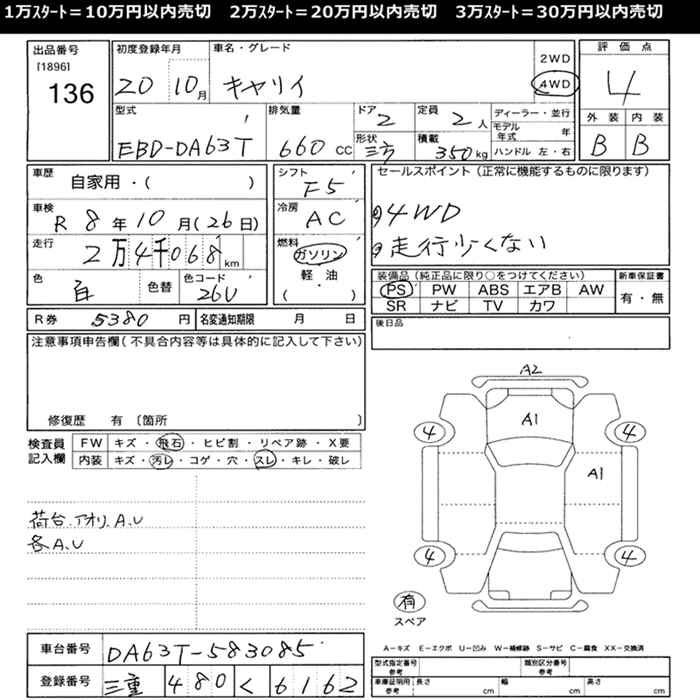 1万スタート=10万円以内売切 2万スタート=20万円以内売切 3万スタート=30万円以内売切
出品番号
[1896]
136
初度登録年月
20 10月
車名・グレード
キャリイ
2WD
4WD
評価点
4
外装 内装
B B
型式
EBD-DA63T
排気量
660 CC
ドア
2
形状
三方
定員
2人
積載
350kg
ディーラー・並行
モデル年式 年
ハンドル 左・右
車歴
自家用・( )
車検
R 8年10月(26日)
走行
2万4千068km
色
白
色替
色コード
26U
シフト
F5
冷房
AC
燃料
ガソリン
軽・油
( ・ )
セールスポイント(正常に機能するものに限ります)
4WD
走行少くない
装備品(純正品に限り○をつけてください)
PS PW ABS エアB AW
SR ナビ TV カワ
新車保証書
有・無
R券 5380円
名変通知期限 月 日
後日品
注意事項申告欄(不具合内容等は具体的に記入して下さい)
修復歴 有〔箇所 〕
検査員記入欄
FW キズ・飛石・ヒビ割・リペア跡・X要
内装 キズ・汚レ・コゲ・穴・スレ・キレ・破レ
荷台.アオリ.A.U
各A.U
A2
A1
A1
4 4
4 4
有
スペア
A-キズ E-エクボ U-凹み W-補修跡 S-サビ C-腐食 XX-交換済
車台番号 DA63T-583085
登録番号 三重 480 く 6162
型式指定番号
参考
類別区分番号
参考
車庫証明用
参考
長さ cm 幅 cm 高さ cm